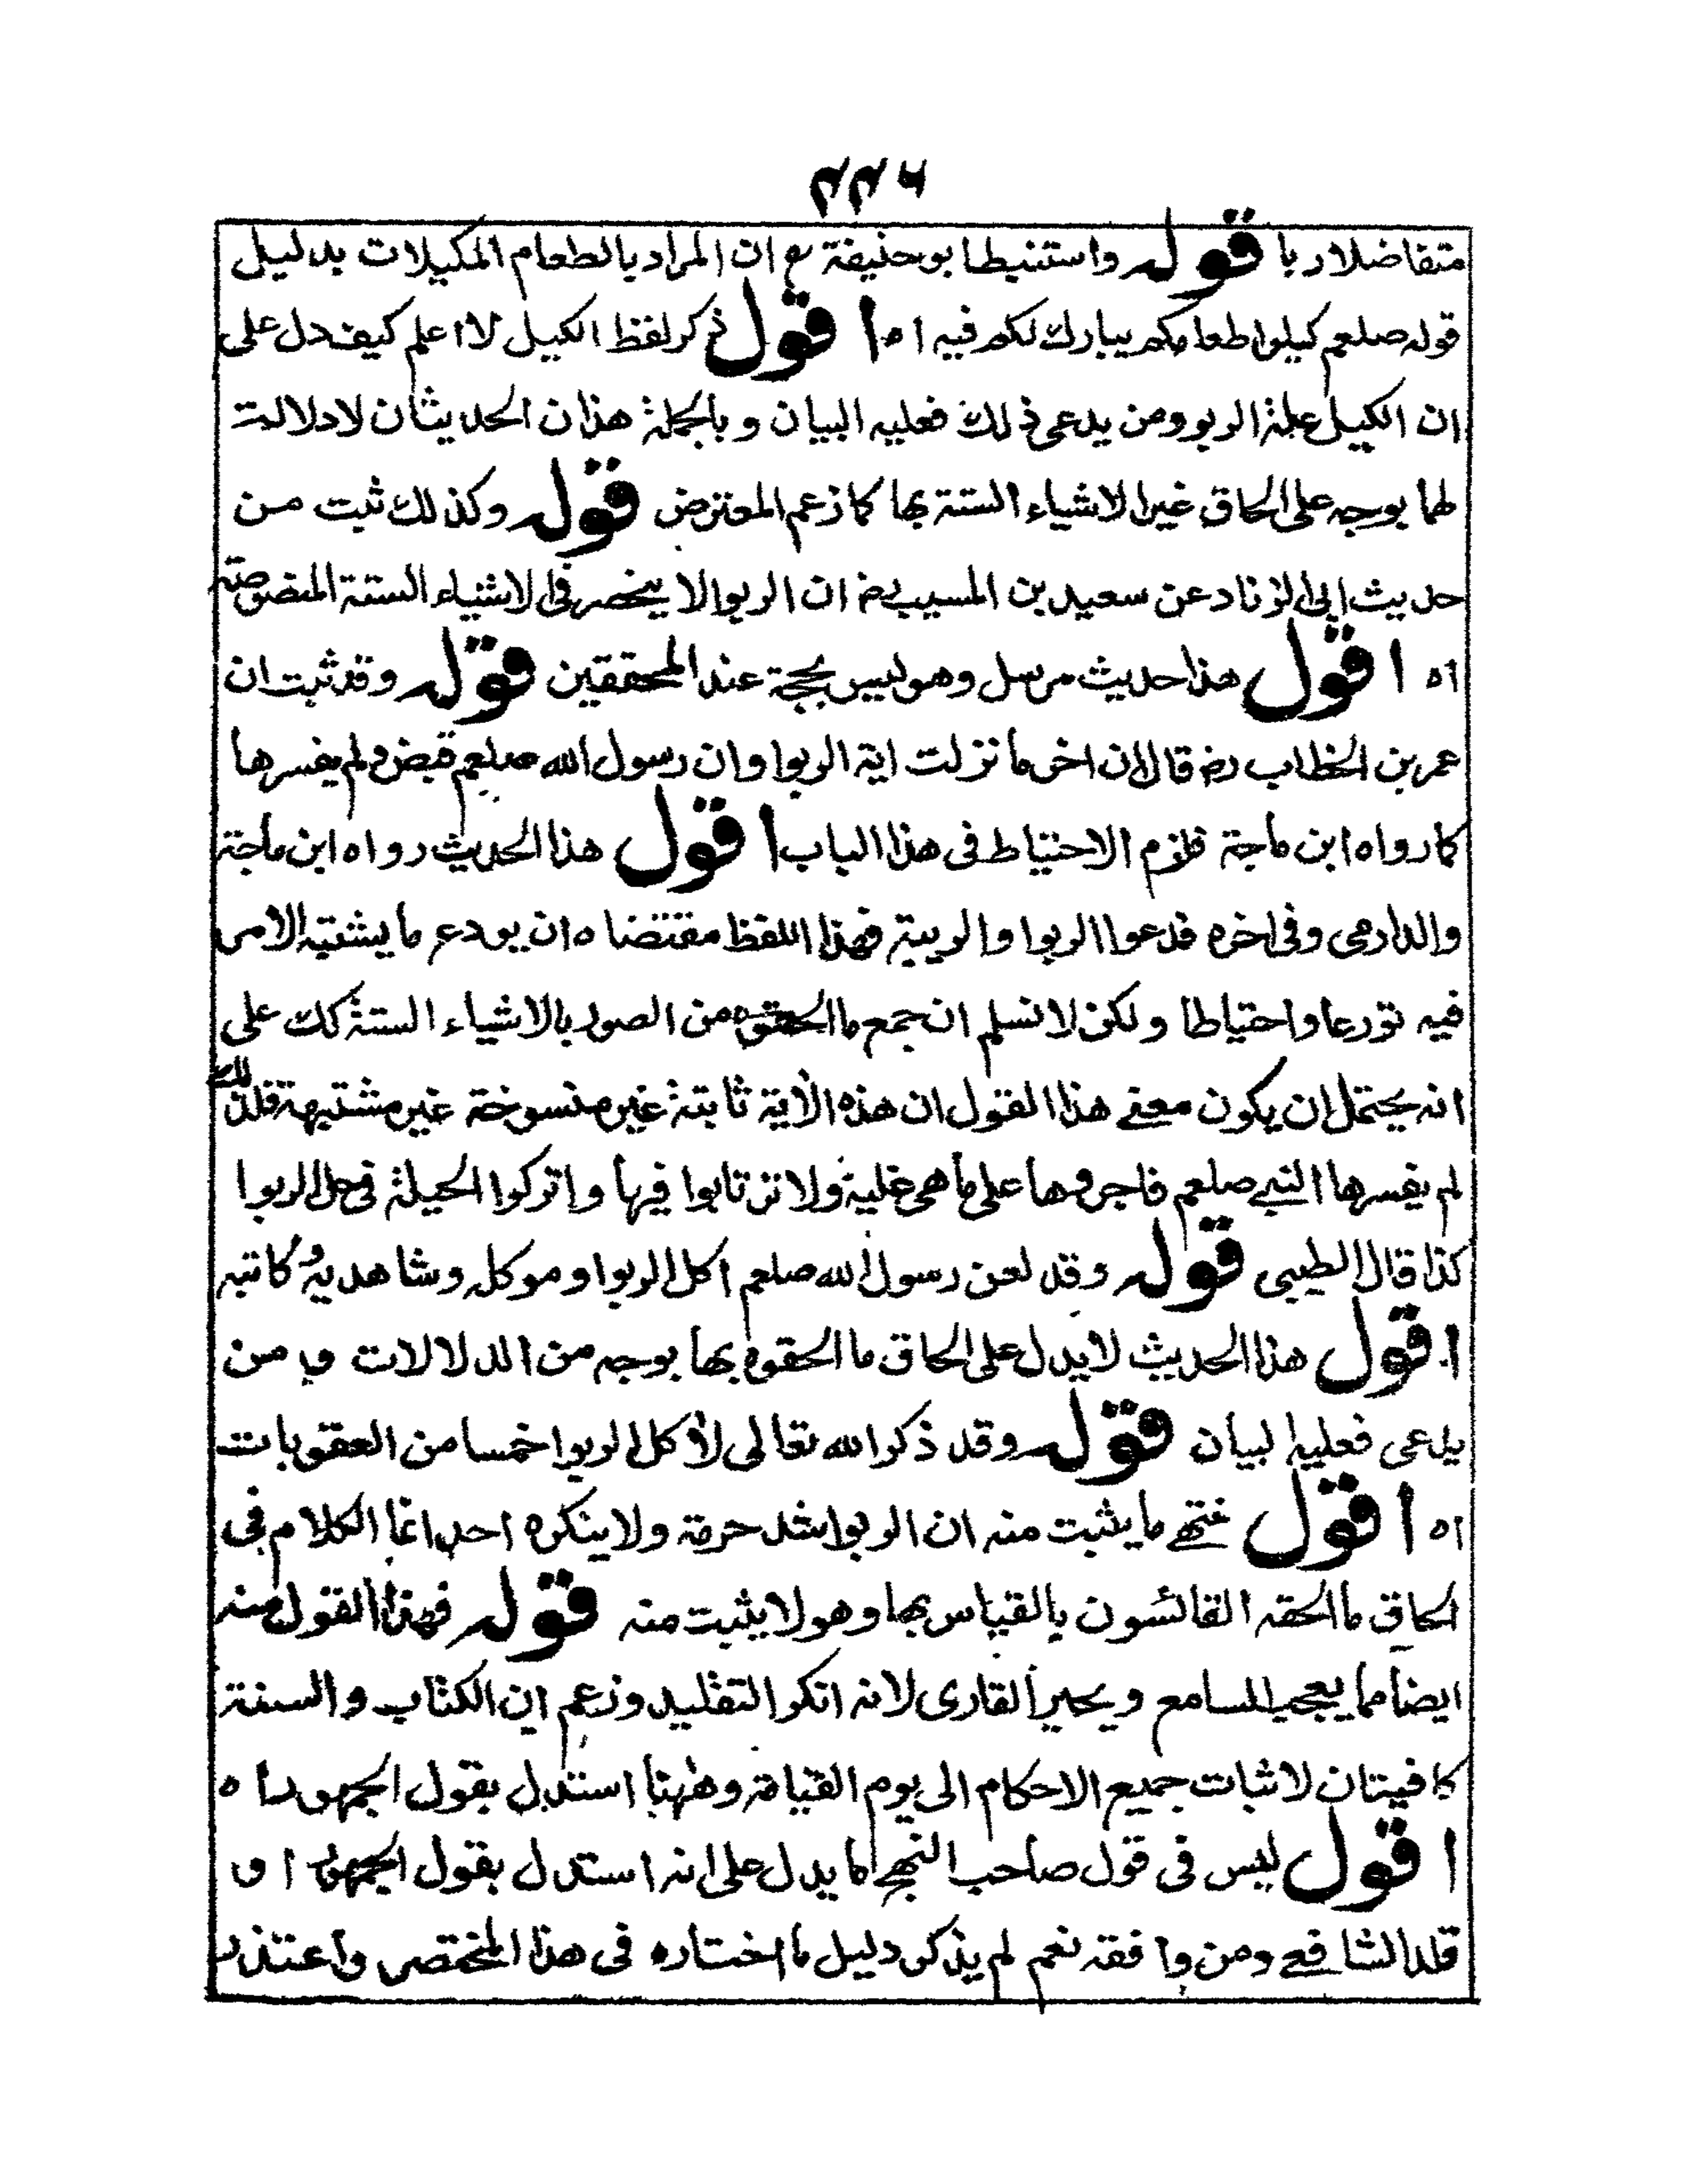 ۴۴۶
متفاضلا ربا قوله واستنبط ابوحنيفة رح ان المراد بالطعام المكيلات بدليل
قوله صلعم كيلوا طعامكم يبارك لكم فيه اه اقول ذكر لفظ الكيل لا اعلم كيف دل على
ان الكيل علة الربو ومن يدعى ذلك فعليه البيان وبالجملة هذان الحديثان لا دلالة
لهما بوجه على الحاق غير الاشياء الستة بها كما زعم المعترض قوله وكذلك ثبت من
حديث ابى الزناد عن سعيد بن المسيب رض ان الربوا لا ينحصر فى الاشياء الستة المنصوصة
اه اقول هذا حديث مرسل وهو ليس بحجة عند المحققين قوله وقد ثبت ان
عمر بن الخطاب رض قال ان اخر ما نزلت اية الربوا وان رسول الله صلعم قبض ولم يفسرها
كما رواه ابن ماجة فلزم الاحتياط فى هذا الباب اقول هذا الحديث رواه ابن ماجة
والدارمى وفى اخره فدعوا الربوا والريبة فهذا اللفظ مقتضاه ان يودع ما يشتبه الامر
فيه تورعا واحتياطا ولكن لا نسلم ان جمع ما الحقوه من الصور بالاشياء الستة كك على
انه يحتمل ان يكون معنى هذا القول ان هذه الأية ثابتة غير منسوخة غير مشتبهة فلذلك
لم يفسرها النبى صلعم فاجروها على ما هى عليه ولا ترتابوا فيها واتركوا الحيلة فى حل الربوا
كذا قال الطيبى قوله وقد لعن رسول الله صلعم اكل الربوا وموكله وشاهديه وكاتبه
اقول هذا الحديث لا يدل على الحاق ما الحقوه بها بوجه من الدلالات ومن
يدعى فعليه البيان قوله وقد ذكر الله تعالى لأكل الربوا خمسا من العقوبات
اه اقول ما يثبت منه ان الربوا اشد حرمة ولا ينكره احد انما الكلام فى
الحاق ما الحقه القائسون بالقياس بها وهو لا يثبت منه قوله فهذا القول منه
ايضا مما يعجب السامع ويحير القارى لانه انكر التقليد وزعم ان الكتاب والسنة
كافيتان لاثبات جميع الاحكام الى يوم القيامة وههنا استدل بقول الجمهور اه
اقول ليس فى قول صاحب النهج ما يدل على انه استدل بقول الجمهور او
قلد الشافعى ومن وافقه نعم لم يذكر دليل ما اختاره فى هذا المختصر واعتذر